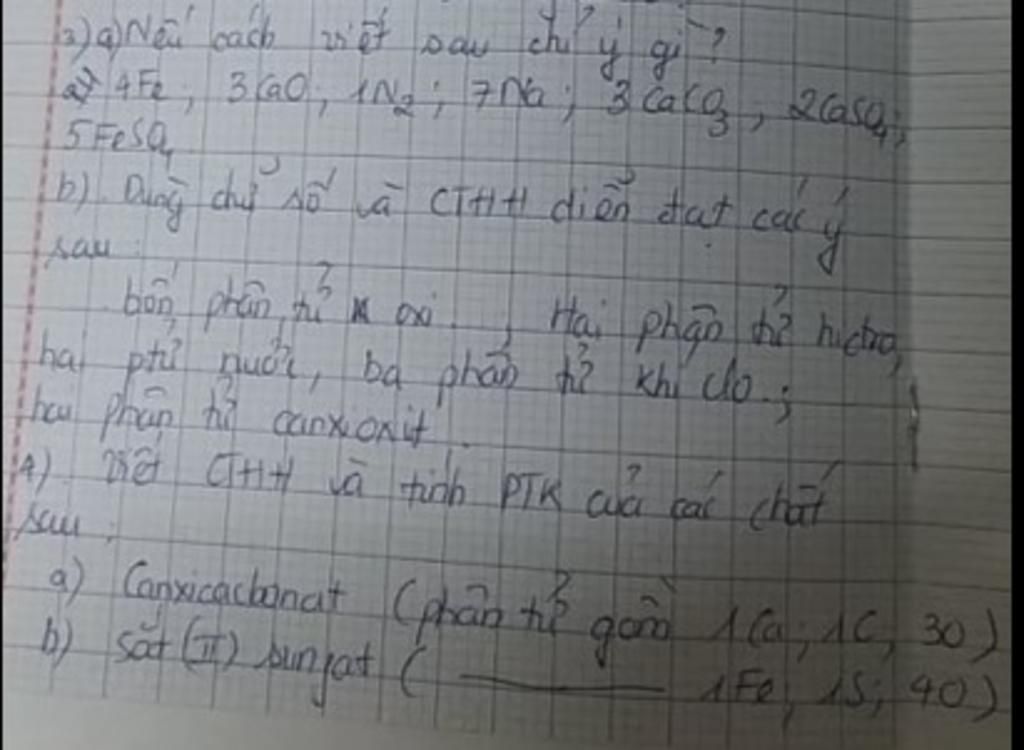 3) a) Nêu cách viết sau chỉ ý gì?
a) 4Fe; 3CaO; 1N₂; 7Na; 3CaCO₃, 2CaSO₄;
5FeSO₄
b). Dùng chữ số và CTHH diễn đạt các ý
sau:
bốn phân tử oxi; Hai phân tử hidro,
hai ptử nước, ba phân tử khí clo;
hai phân tử canxioxit.
4) Viết CTHH và tính PTK của các chất
sau:
a) Canxicacbonat (phân tử gồm 1Ca; 1C, 3O)
b) sắt (II) sunfat ( ——— 1Fe, 1S; 4O)